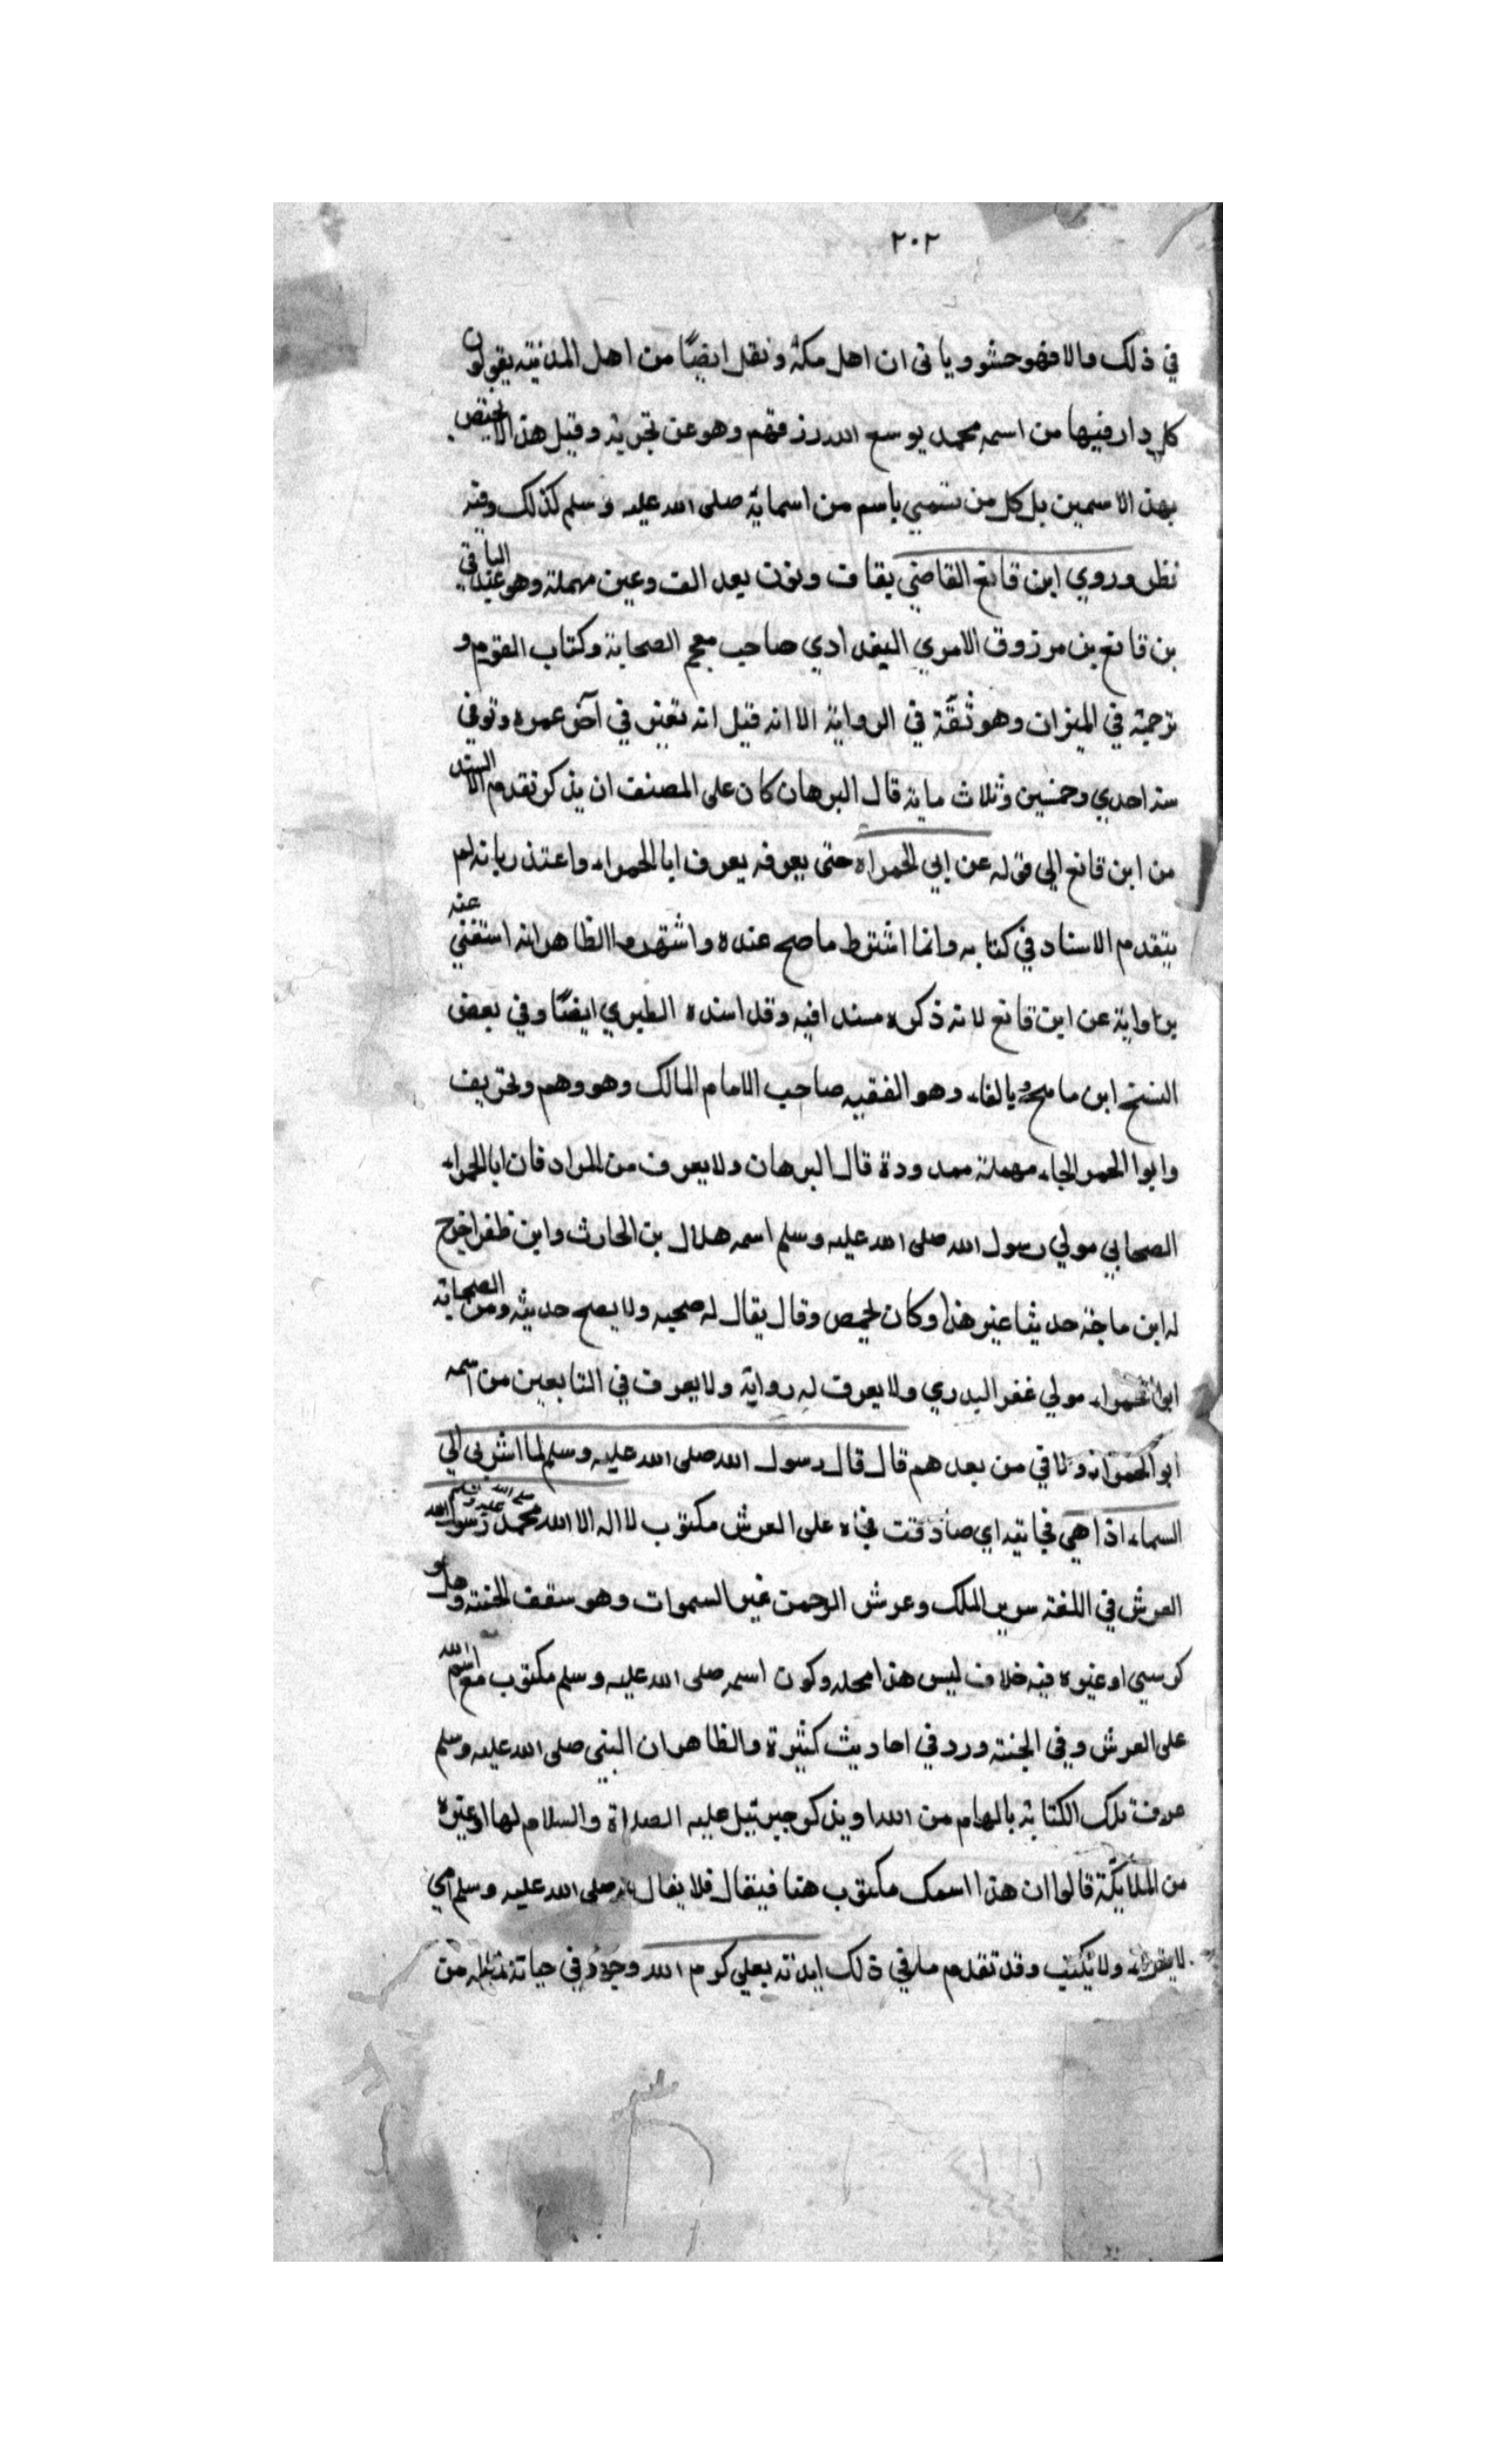 ٢٠٢
في ذلك والا فهو حشو وياتى ان اهل مكة ونقل ايضًا من اهل المدنيته يقولون
كل دار فيها من اسمه محمد يوسع الله رزقهم وهو عن تجربة وقيل هذا لا يختص
بهذ الاسمين بل كل من تسمي باسم من اسمايه صلى الله عليه وسلم كذلك وفيه
نظر وروي ابن قانع القاضي بقاف ونون بعد الف وعين مهملة وهو عبد الباقي
بن قانع بن مرزوق الاموي البغدادي صاحب معجم الصحابة وكتاب القوم و
ترجمته في الميزان وهو ثقة في الرواية الا انه قيل انه تغير في آخر عمره وتوفي
سنه احدي وخمسين وثلاث ماية قال البرهان كان على المصنف ان يذكر تقدم السند
من ابن قانع الي قوله عن ابي الحمراء حتى يعرفه يعرف ابا الحمراء واعتذر بانه لم
يتقدم الاسناد في كتابه وانما اشترط ما صح عنده واشتهر والظاهر انه استغني عنه
بروايته عن ابن قانع لانه ذكره مسندا فيه وقد اسنده الطبري ايضًا وفي بعض
النسخ ابن بالفاء وهو الفقيه صاحب الامام المالك وهو وهم وتحريف
وابوا الحمر الحاء مهملة ممدودة قال البرهان ولا يعرف من المراد فان ابا الحمراء
الصحابي مولي رسول الله صلى الله عليه وسلم اسمه هلال بن الحارث وابن ظفر اخرج
له ابن ماجة حديثا غير هذا وكان لحمص وقال يقال له صحبه ولا يصح حديثه ومن الصحابة
ابوا الحمراء مولي عفر البدري ولا يعرف له رواية ولا يعرف في التابعين من اسمه
ابو الحمراء ولا في من بعدهم قال قال رسول الله صلى الله عليه وسلم لما اسري بي الي
السماء اذا هي فجائيه اي صادفت فجاه على العرش مكتوب لا اله الا الله محمد رسول الله
العرش في اللغة سرير الملك وعرش الرحمن غير السموات وهو سقف الجنته وهل هو
كرسي او غيره فيه خلاف ليس هذا محله وكون اسمه صلى الله عليه وسلم مكتوب مع اسم الله
على العرش وفي الجنته ورد في احاديث كثيرة والظاهر ان النبي صلى الله عليه وسلم
عرف تلك الكتابة بالهام من الله او بذكر جبرئيل عليه الصلاة والسلام لها او غيره
من الملايكة قالوا ان هذا اسمك مكتوب هنا فيقال فلا يقال صلى الله عليه وسلم امي
ولا يكتب وقد تقدم ما في ذلك ايدته بعلي كرم الله وجهه في حياته من